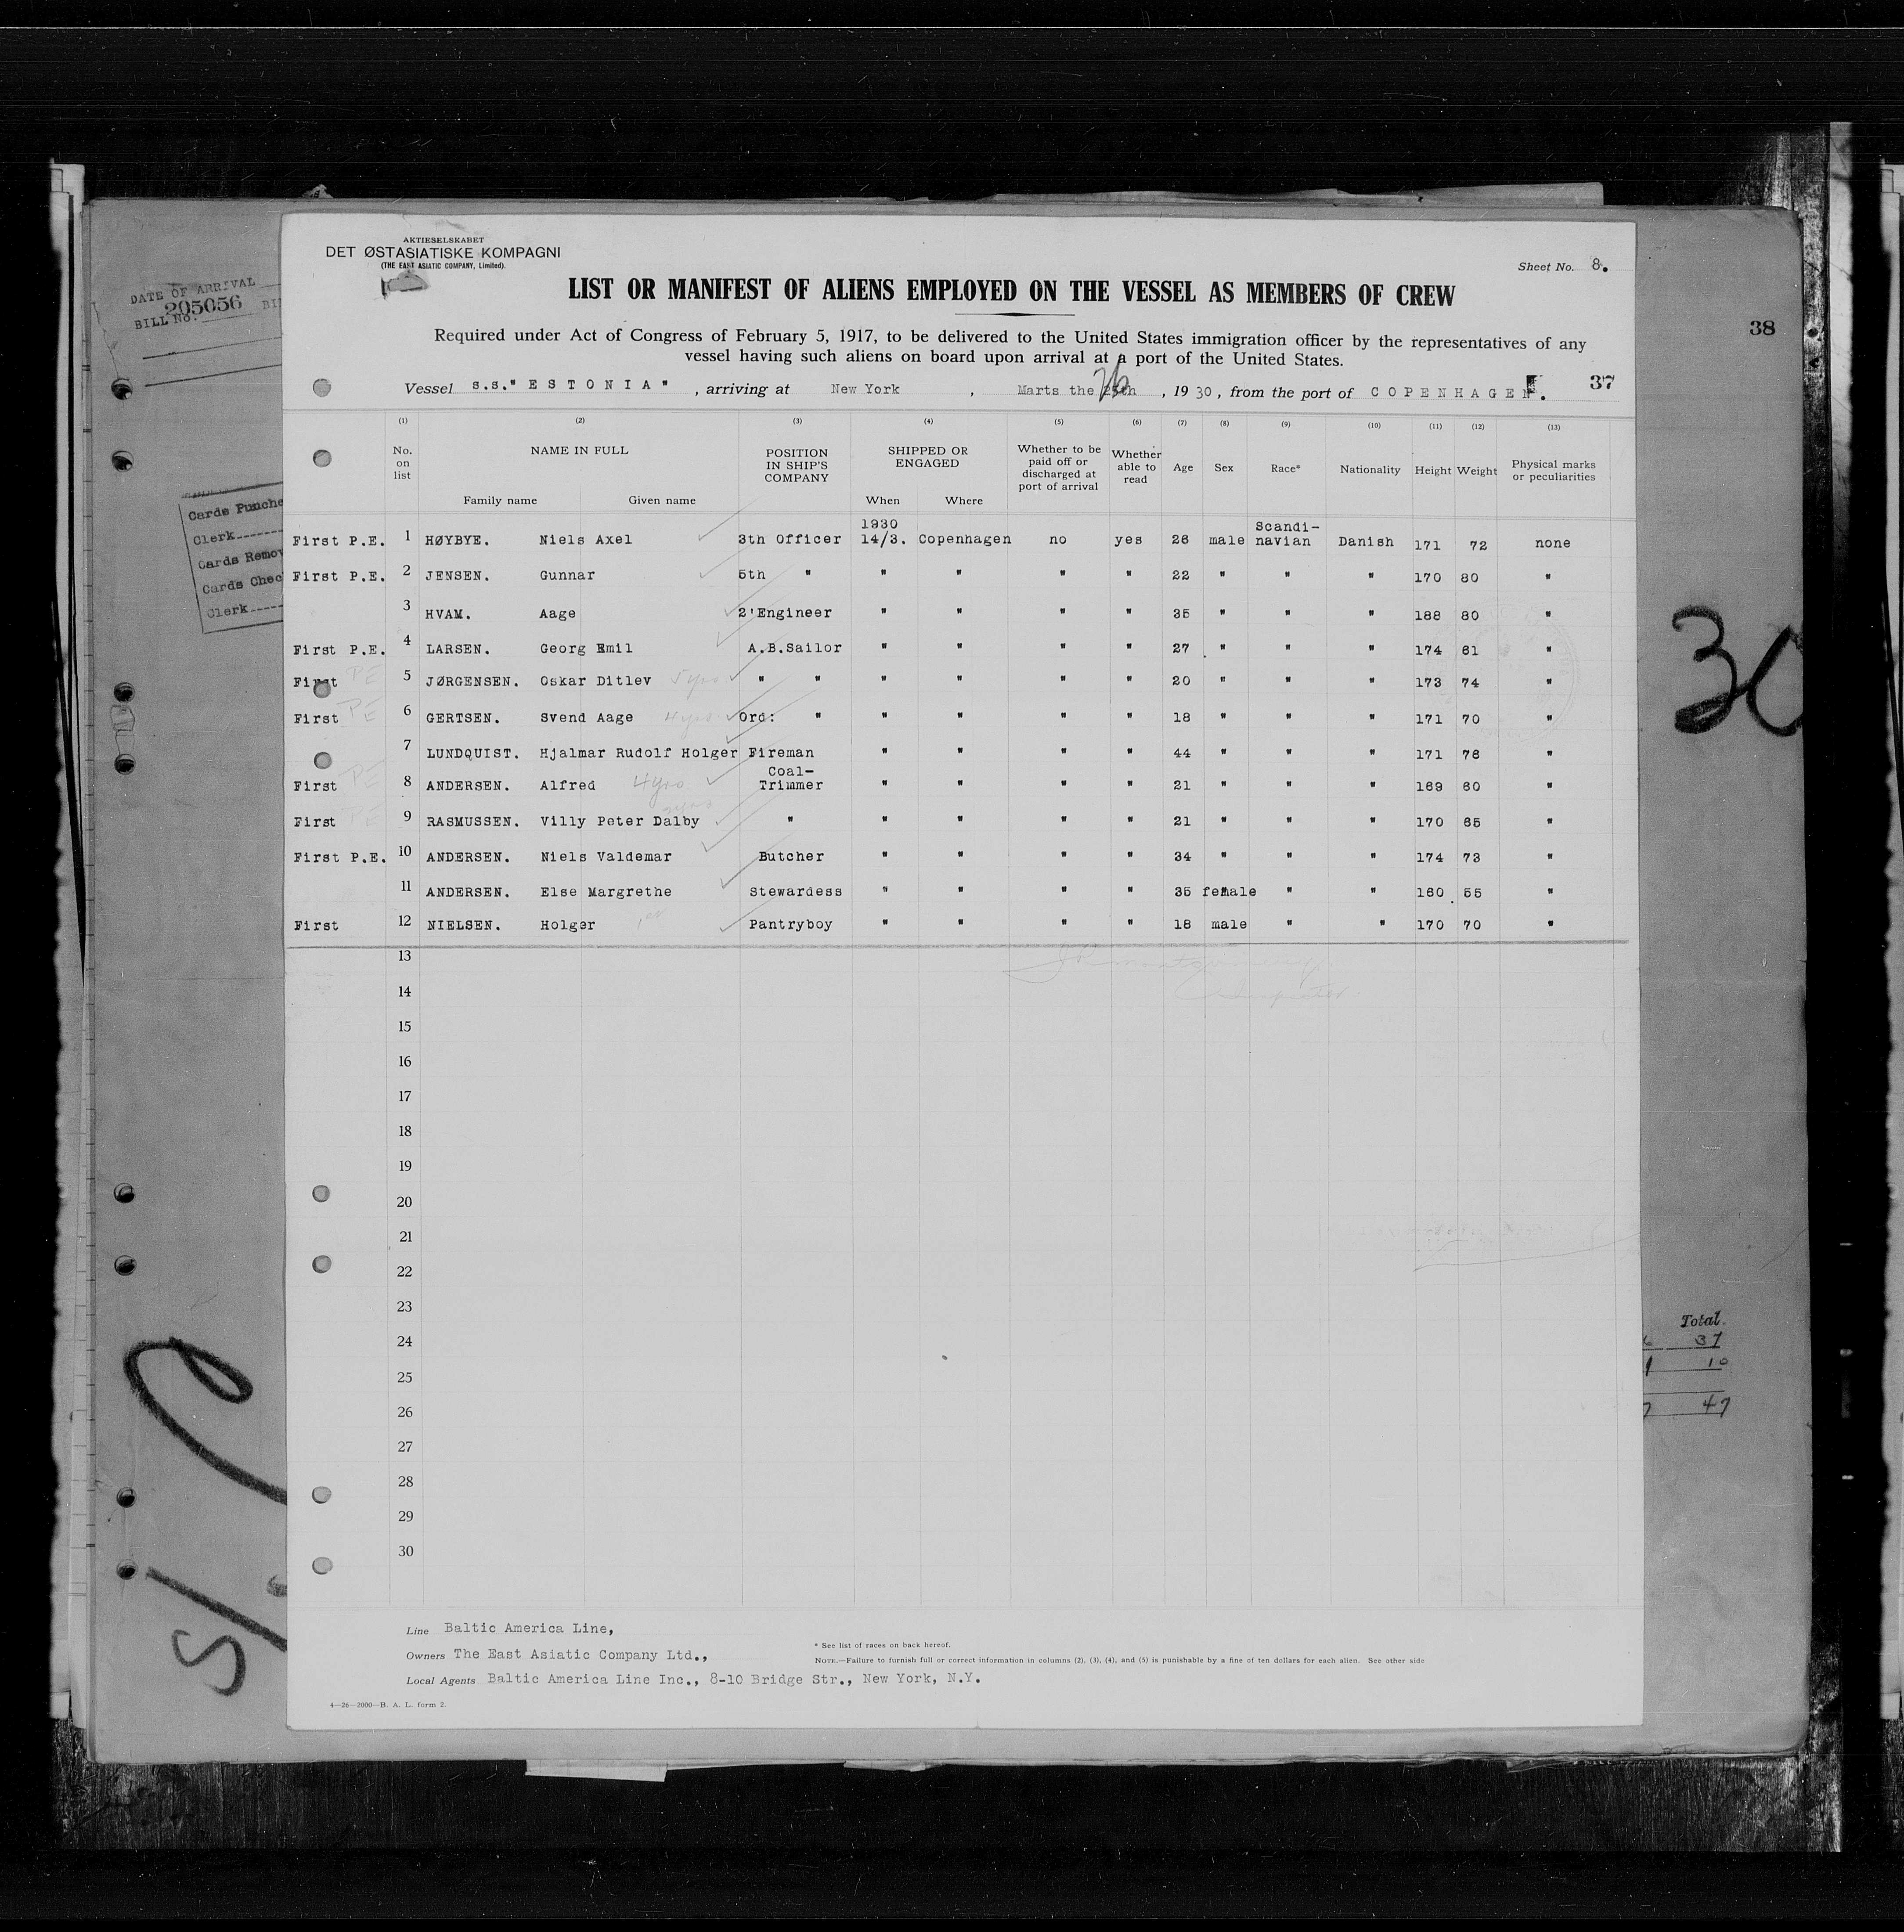 AKTIESELSKABET
DET ØSTASIATISKE KOMPAGNI
(THE EAST ASIATIC COMPANY, Limited).
Sheet No. 8.
LIST OR MANIFEST OF ALIENS EMPLOYED ON THE VESSEL AS MEMBERS OF CREW
DATE OF ARRIVAL
205056
BILL No.
38
Required under Act of Congress of February 5, 1917, to be delivered to the United States immigration officer by the representatives of any
vessel having such aliens on board upon arrival at a port of the United States.
Vessel s.s." E S T O N I A " , arriving at New York , Marts the 26 , 19 30 , from the port of C O P E N H A G E N . 37
(1) (2) (3) (4) (5) (6) (7) (8) (9) (10) (11) (12) (13)
No. on list NAME IN FULL Family name Given name POSITION IN SHIP'S COMPANY SHIPPED OR ENGAGED When Where Whether to be paid off or discharged at port of arrival Whether able to read Age Sex Race* Nationality Height Weight Physical marks or peculiarities
Cards Punche
Clerk
Cards Remov
Cards Chec
Clerk
1930 Scandi-
First P.E. 1 HØYBYE. Niels Axel 3th Officer 14/3. Copenhagen no yes 26 male navian Danish 171 72 none
First P.E. 2 JENSEN. Gunnar 5th " " " " " 22 " " " 170 80 "
3 HVAM. Aage 2'Engineer " " " " 35 " " " 188 80 "
First P.E. 4 LARSEN. Georg Emil A.B.Sailor " " " " 27 " " " 174 61 "
First PE 5 JØRGENSEN. Oskar Ditlev 5yrs " " " " " " 20 " " " 173 74 "
First PE 6 GERTSEN. Svend Aage 4yrs Ord: " " " " " 18 " " " 171 70 "
7 LUNDQUIST. Hjalmar Rudolf Holger Fireman " " " " 44 " " " 171 76 "
Coal-
First PE 8 ANDERSEN. Alfred 4yrs Trimmer " " " " 21 " " " 169 60 "
First PE 9 RASMUSSEN. Villy Peter Dalby " " " " " 21 " " " 170 65 "
First P.E. 10 ANDERSEN. Niels Valdemar Butcher " " " " 34 " " " 174 73 "
11 ANDERSEN. Else Margrethe Stewardess " " " " 35 female " " 160 55 "
First 12 NIELSEN. Holger 1st Pantryboy " " " " 18 male " " 170 70 "
30
13
14
15
16
17
18
19
20
21
22
23
24
25
26
27
28
29
30
Total.
37
10
47
Line Baltic America Line,
Owners The East Asiatic Company Ltd.,
Local Agents Baltic America Line Inc., 8-10 Bridge Str., New York, N.Y.
* See list of races on back hereof.
NOTE.—Failure to furnish full or correct information in columns (2), (3), (4), and (5) is punishable by a fine of ten dollars for each alien. See other side
4—26—2000—B. A. L. form 2.